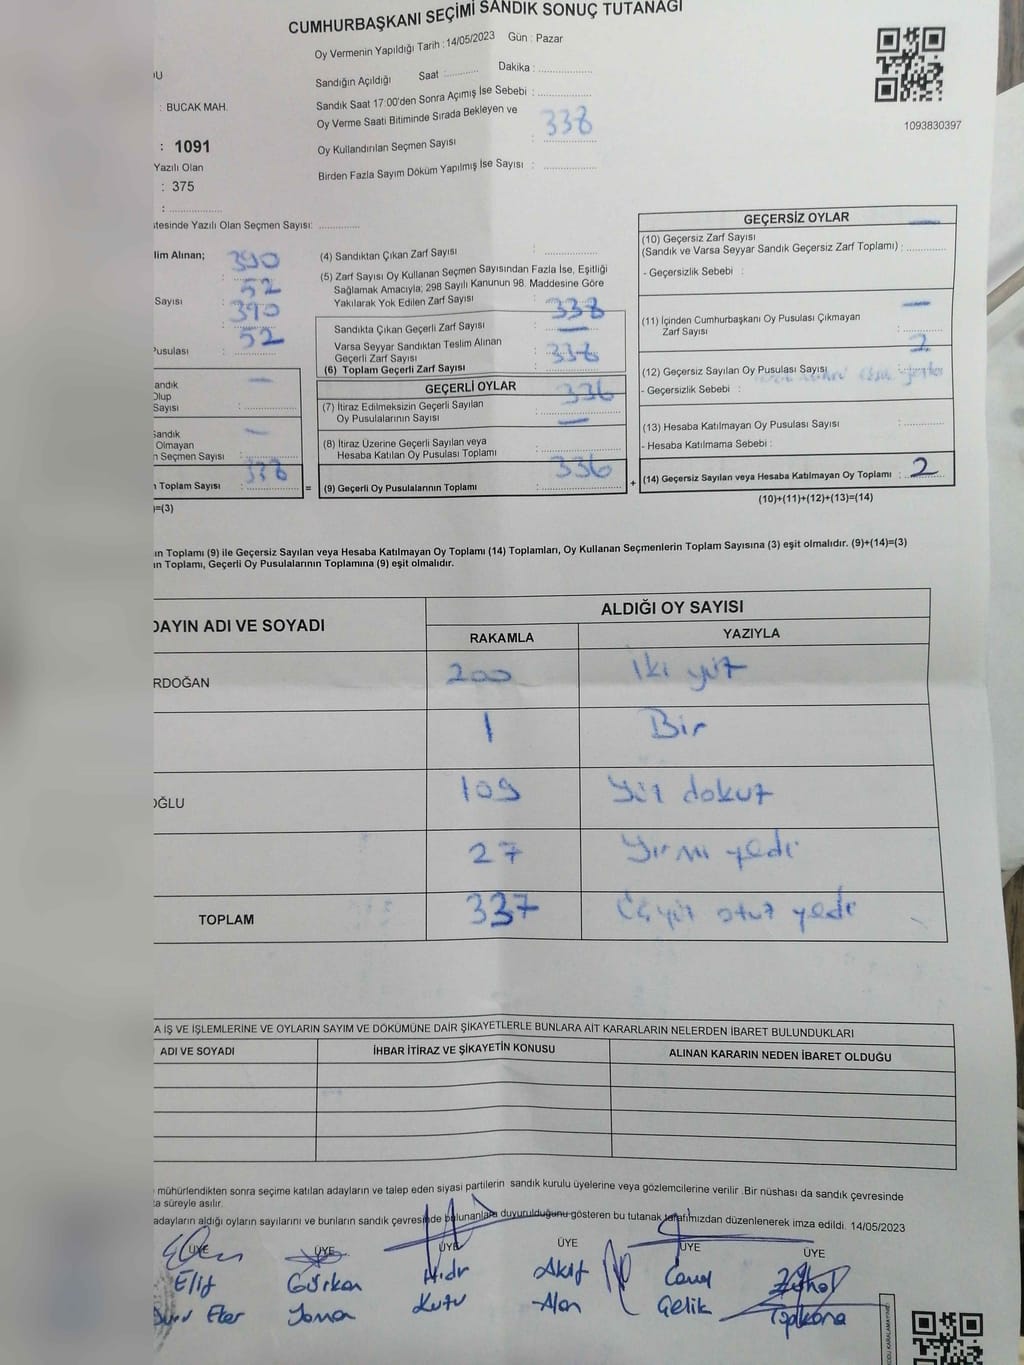 CUMHURBAŞKANI SEÇİMİ SANDIK SONUÇ TUTANAĞI
Oy Vermenin Yapıldığı Tarih : 14/05/2023 Gün : Pazar
Sandığın Açıldığı Saat : Dakika :
: BUCAK MAH.
Sandık Saat 17:00'den Sonra Açımış İse Sebebi :
Oy Verme Saati Bitiminde Sırada Bekleyen ve
1093830397
: 1091
Oy Kullandırılan Seçmen Sayısı : 338
Yazılı Olan
Birden Fazla Sayım Döküm Yapılmış İse Sayısı :
: 375
Yazılı Olan Seçmen Sayısı:
lim Alınan; 390
52
Sayısı 390
52
usulası
andık
Olup
Sayısı : —
Sandık
Olmayan
Seçmen Sayısı : —
Toplam Sayısı : 338
)=(3)
(4) Sandıktan Çıkan Zarf Sayısı :
(5) Zarf Sayısı Oy Kullanan Seçmen Sayısından Fazla İse, Eşitliği
Sağlamak Amacıyla; 298 Sayılı Kanunun 98. Maddesine Göre
Yakılarak Yok Edilen Zarf Sayısı :
Sandıkta Çıkan Geçerli Zarf Sayısı : 338
Varsa Seyyar Sandıktan Teslim Alınan
Geçerli Zarf Sayısı : —
(6) Toplam Geçerli Zarf Sayısı : 338
GEÇERLİ OYLAR
(7) İtiraz Edilmeksizin Geçerli Sayılan
Oy Pusulalarının Sayısı : 336
(8) İtiraz Üzerine Geçerli Sayılan veya
Hesaba Katılan Oy Pusulası Toplamı : —
= (9) Geçerli Oy Pusulalarının Toplamı : 336
GEÇERSİZ OYLAR
(10) Geçersiz Zarf Sayısı
(Sandık ve Varsa Seyyar Sandık Geçersiz Zarf Toplamı) : —
- Geçersizlik Sebebi :
(11) İçinden Cumhurbaşkanı Oy Pusulası Çıkmayan
Zarf Sayısı : —
(12) Geçersiz Sayılan Oy Pusulası Sayısı : 2
- Geçersizlik Sebebi :
(13) Hesaba Katılmayan Oy Pusulası Sayısı :
- Hesaba Katılmama Sebebi :
+ (14) Geçersiz Sayılan veya Hesaba Katılmayan Oy Toplamı : 2
(10)+(11)+(12)+(13)=(14)
Toplamı (9) ile Geçersiz Sayılan veya Hesaba Katılmayan Oy Toplamı (14) Toplamları, Oy Kullanan Seçmenlerin Toplam Sayısına (3) eşit olmalıdır. (9)+(14)=(3)
Toplamı, Geçerli Oy Pusulalarının Toplamına (9) eşit olmalıdır.
DAYIN ADI VE SOYADI ALDIĞI OY SAYISI
RAKAMLA YAZIYLA
RDOĞAN 200 İki yüz
1 Bir
OĞLU 109 Yüz dokuz
27 Yirmi yedi
TOPLAM 337 Üçyüz otuz yedi
A İŞ VE İŞLEMLERİNE VE OYLARIN SAYIM VE DÖKÜMÜNE DAİR ŞİKAYETLERLE BUNLARA AİT KARARLARIN NELERDEN İBARET BULUNDUKLARI
ADI VE SOYADI İHBAR İTİRAZ VE ŞİKAYETİN KONUSU ALINAN KARARIN NEDEN İBARET OLDUĞU
mühürlendikten sonra seçime katılan adayların ve talep eden siyasi partilerin sandık kurulu üyelerine veya gözlemcilerine verilir .Bir nüshası da sandık çevresinde
süreyle asılır.
adayların aldığı oyların sayılarını ve bunların sandık çevresinde bulunanlara duyurulduğunu gösteren bu tutanak tarafımızdan düzenlenerek imza edildi. 14/05/2023
ÜYE ÜYE ÜYE ÜYE ÜYE ÜYE
Elif Gürkan Hıdır Akif Canel Zühal
Eker Yaman Kutu Alan Çelik Topkara